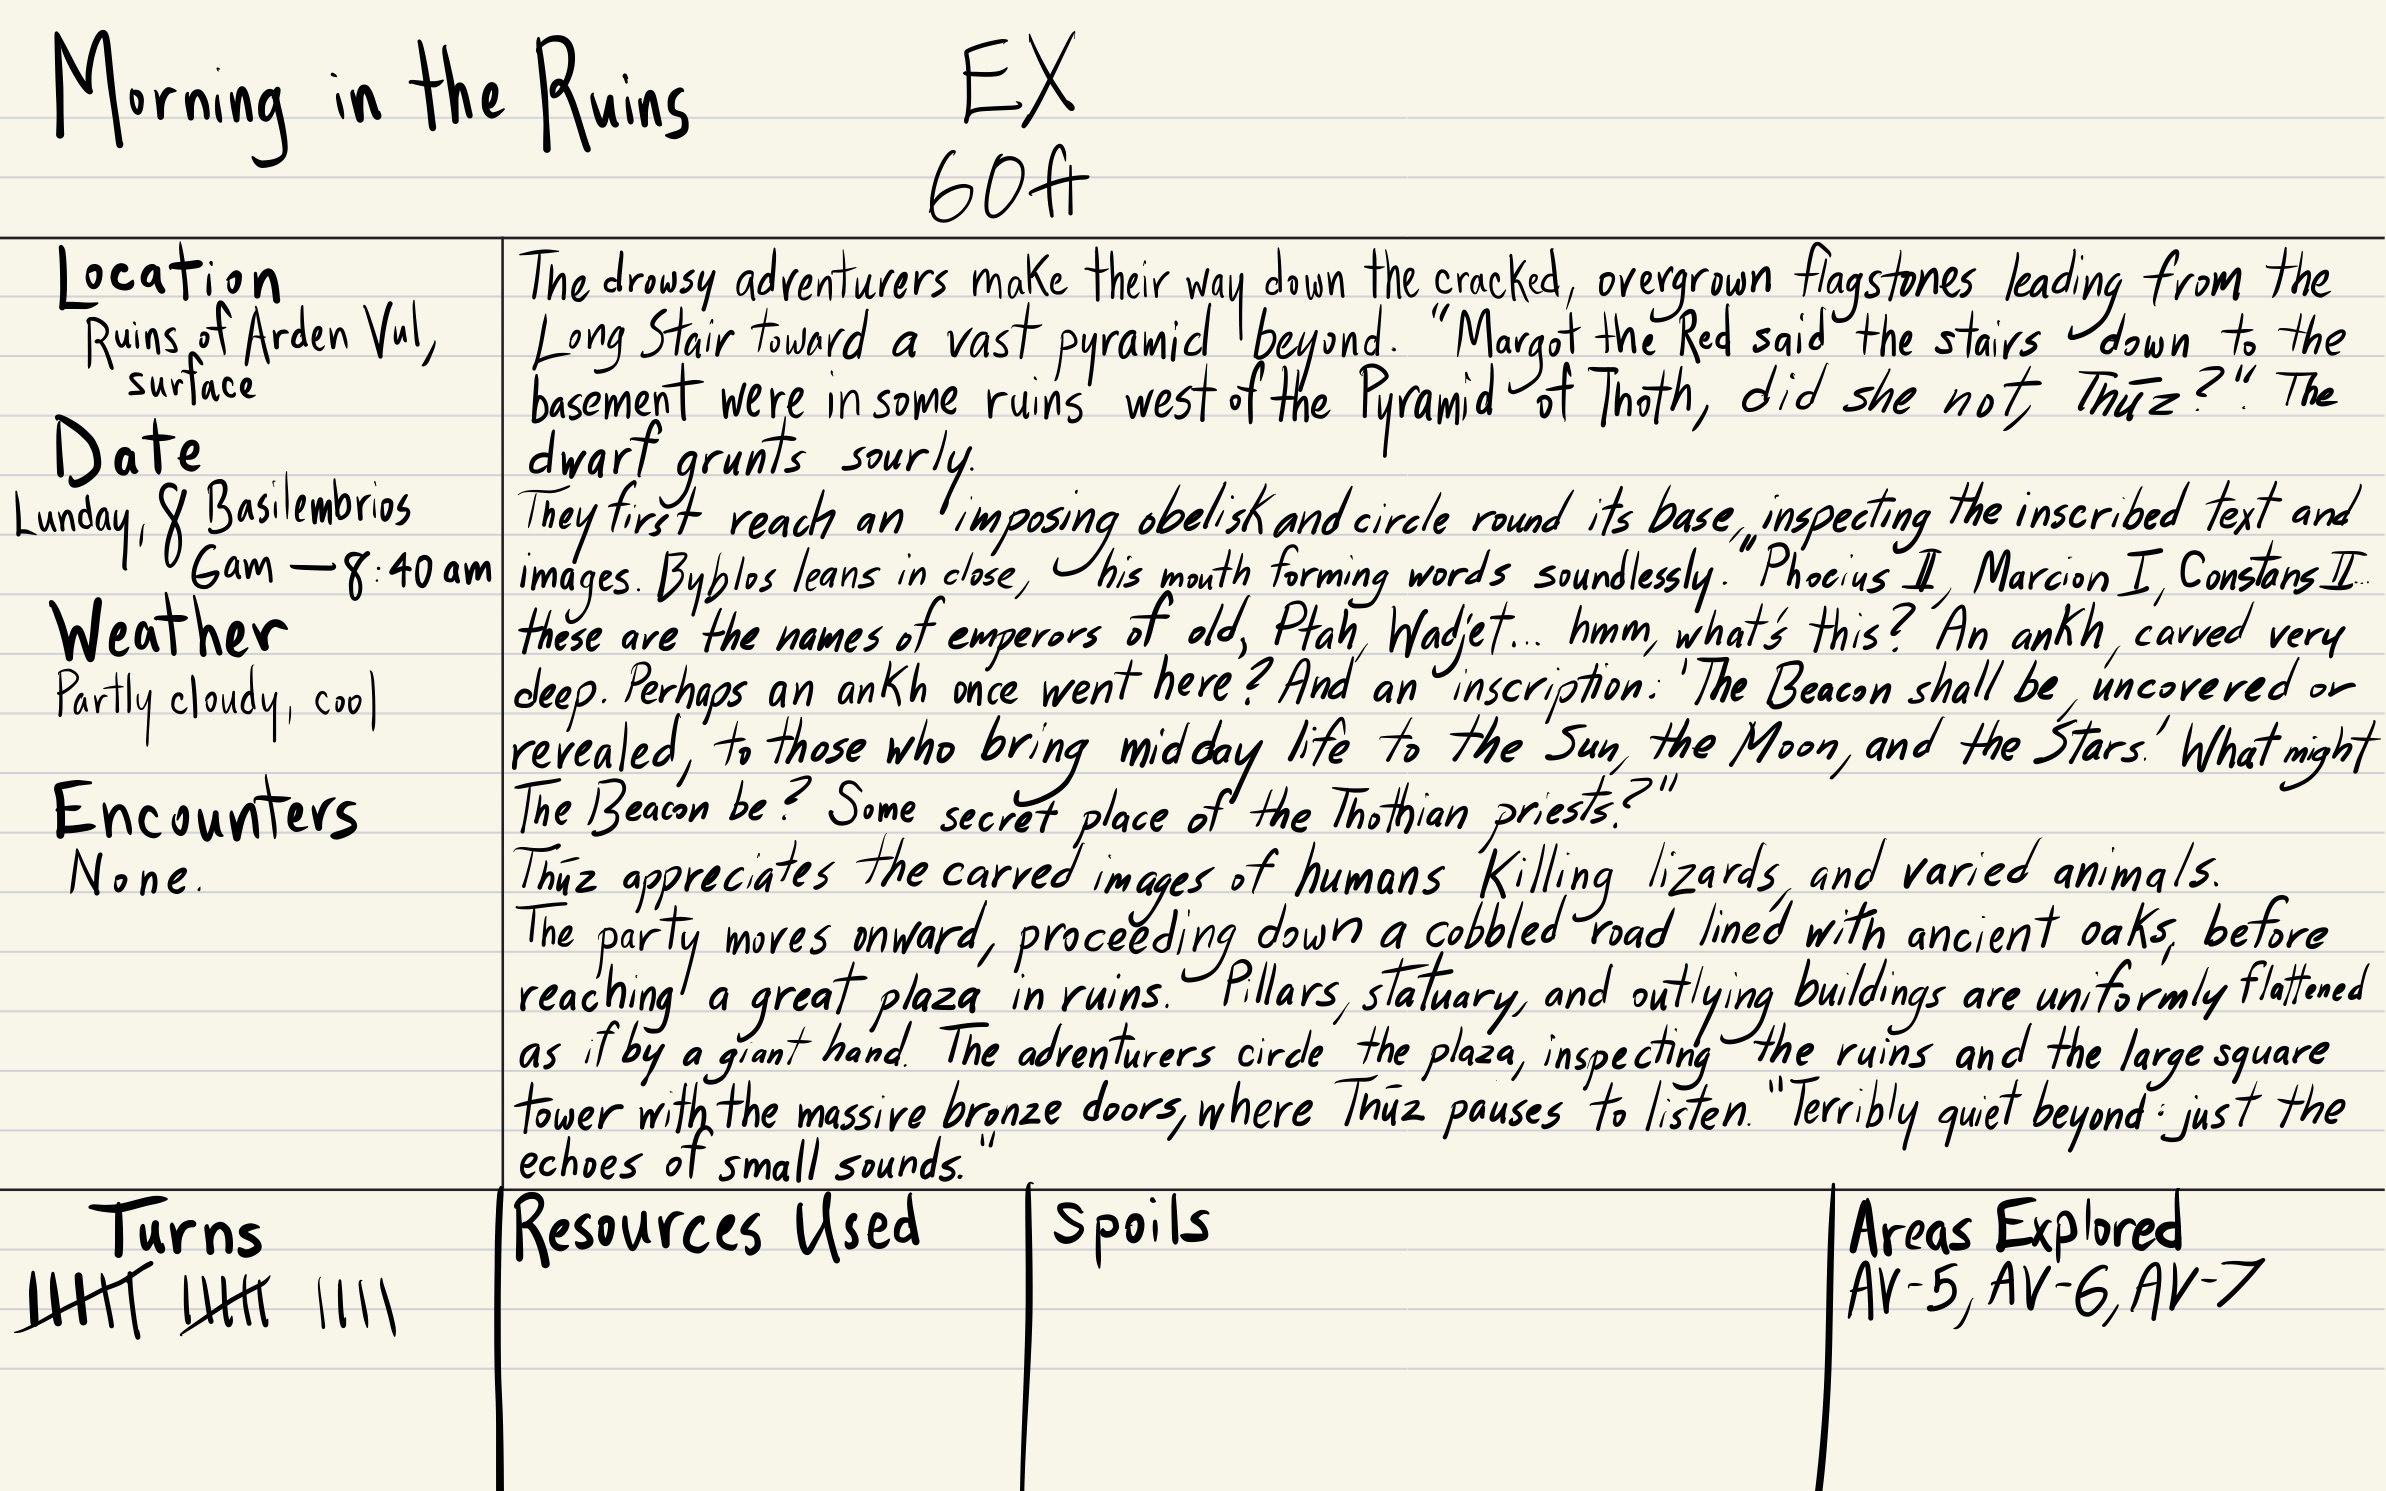 Morning in the Ruins
EX
60ft
Location
Ruins of Arden Vul,
surface
Date
Lunday, 8 Basilembrios
6am — 8:40am
Weather
Partly cloudy, cool
Encounters
None.
The drowsy adventurers make their way down the cracked, overgrown flagstones leading from the
Long Stair toward a vast pyramid beyond. "Margot the Red said the stairs down to the
basement were in some ruins west of the Pyramid of Thoth, did she not, Thūz?". The
dwarf grunts sourly.
They first reach an imposing obelisk and circle round its base, inspecting the inscribed text and
images. Byblos leans in close, his mouth forming words soundlessly. "Phocius II, Marcion I, Constans II...
these are the names of emperors of old, Ptah, Wadjet... hmm, what's this? An ankh, carved very
deep. Perhaps an ankh once went here? And an inscription: 'The Beacon shall be, uncovered or
revealed, to those who bring midday life to the Sun, the Moon, and the Stars.' What might
The Beacon be? Some secret place of the Thothian priests?"
Thūz appreciates the carved images of humans killing lizards, and varied animals.
The party moves onward, proceeding down a cobbled road lined with ancient oaks, before
reaching a great plaza in ruins. Pillars, statuary, and outlying buildings are uniformly flattened
as if by a giant hand. The adventurers circle the plaza, inspecting the ruins and the large square
tower with the massive bronze doors, where Thūz pauses to listen. "Terribly quiet beyond: just the
echoes of small sounds."
Turns
Resources Used
Spoils
Areas Explored
AV-5, AV-6, AV-7